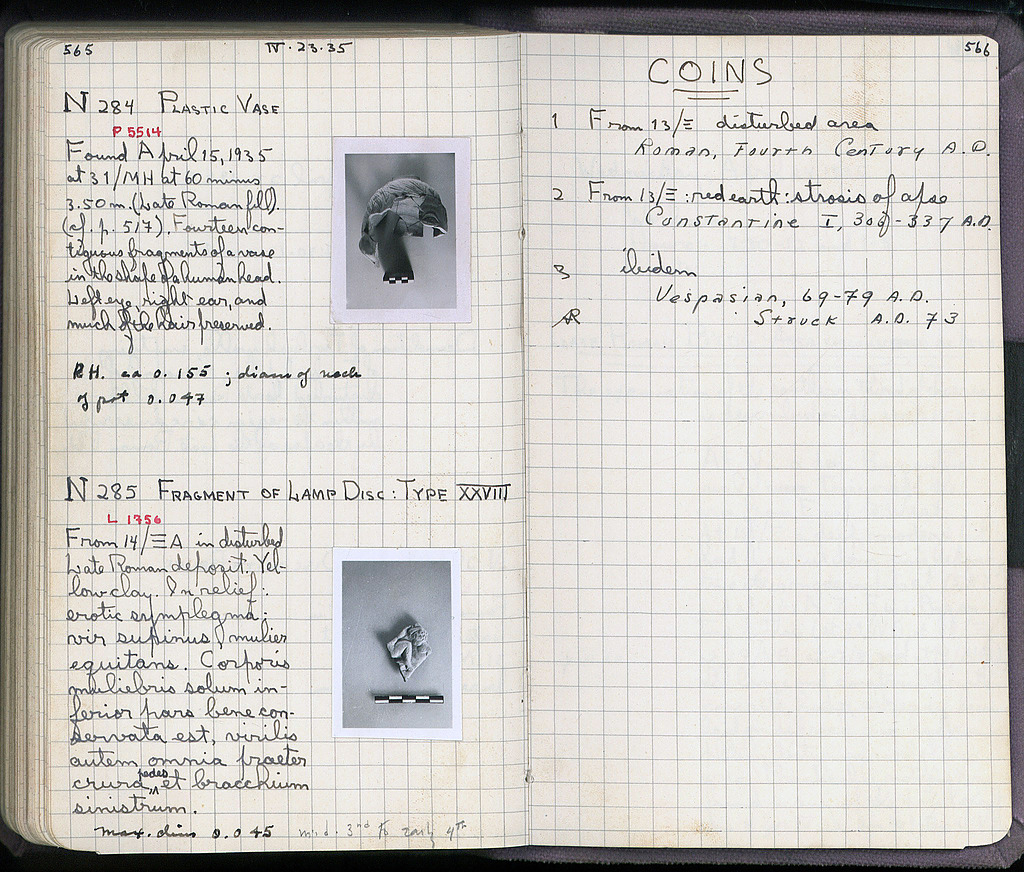 565
IV · 23 · 35
N 284 PLASTIC VASE
P 5514
Found April 15, 1935
at 31/MH at 60 minus
3.50 m. (Late Roman fill).
(cf. p. 517). Fourteen con-
tiguous fragments of a vase
in the shape of a human head.
Left eye, right ear, and
much of the hair preserved.
P.H. ca 0.155 ; diam of neck
of pot 0.047
N 285 FRAGMENT OF LAMP DISC : TYPE XXVIII
L 1756
From 14/ΞA in disturbed
Late Roman deposit. Yel-
low clay. In relief:
erotic symplegma:
vir supinus, mulier
equitans. Corporis
muliebris solum in-
ferior pars bene con-
servata est, virilis
autem omnia praeter
crura, pedes et bracchium
sinistrum.
max. dim 0.045 mid. 3rd to early 4th
566
COINS
1 From 13/Ξ disturbed area
Roman, Fourth Century A.D.
2 From 13/Ξ : red earth : strosis of apse
Constantine I, 306-337 A.D.
3 ibidem
Vespasian, 69-79 A.D.
AR Struck A.D. 73